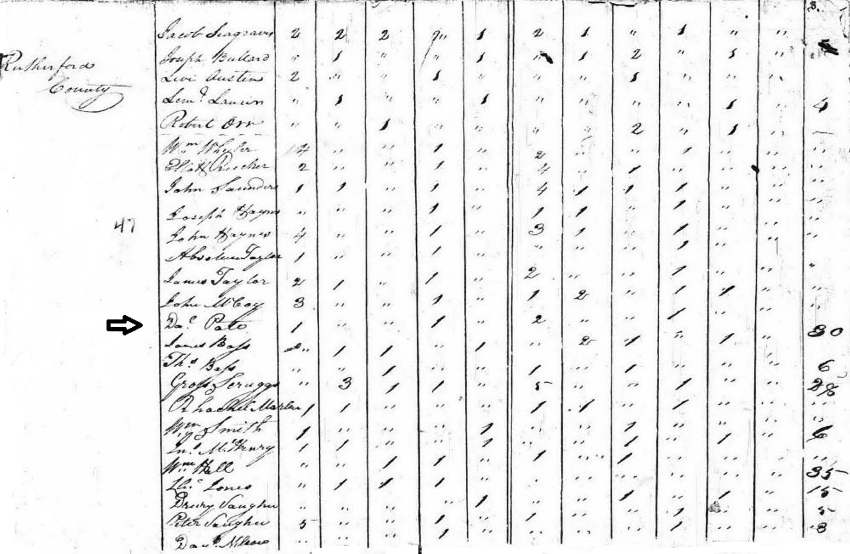 3.
Jacob Seagraves 2 2 2 " 1 2 1 " 1 " "
Joseph Bullard " 1 " " 1 " 1 2 " 1 "
Rutherford County
Levi Austin 2 " " 1 " " " 1 " " "
Lem.l " 1 " " 1 " " " " 1 " 4
Robert Orr " " 1 " " " " 2 " 1 "
Wm " " 1 " 2 " " 1 " "
2 " " 1 " 4 " 1 " " "
John Saunders 1 1 " 1 " 4 1 1 1 " "
47
Joseph Haynes " " " 1 " 1 1 " 1 " "
John Haynes 4 " " 1 " 3 1 " 1 " "
Absolum Taylor 1 " " 1 " " " " 1 " "
James Taylor 2 1 " 1 " 2 " " 1 " "
John McCoy 3 " " 1 " 1 2 " 1 1 "
Da.l Pate 1 " " 1 " 2 " " 1 " "
James Bass " 1 1 " 1 " 2 1 " 1 " 30
Ths Bass " " 1 " " 1 " 1 " " " 6
Gross Scruggs " 3 1 1 " 5 " " 1 " "
1 1 " 1 " 1 1 " 1 " "
Wm Smith 1 " " " 1 " " 1 " " " 6
Jno McHenry 1 1 " " 1 " " 1 " 1 "
Wm Hall " " 1 1 " 1 " 1 " " " 35
Jones " 1 1 1 " " " " " " " 15
Drury Vaughn " " " " 1 " " 1 " 1 "
Peter Vaughn 5 " " 1 " 1 " " 1 " " 5
" " " 1 " " " " " " " 3